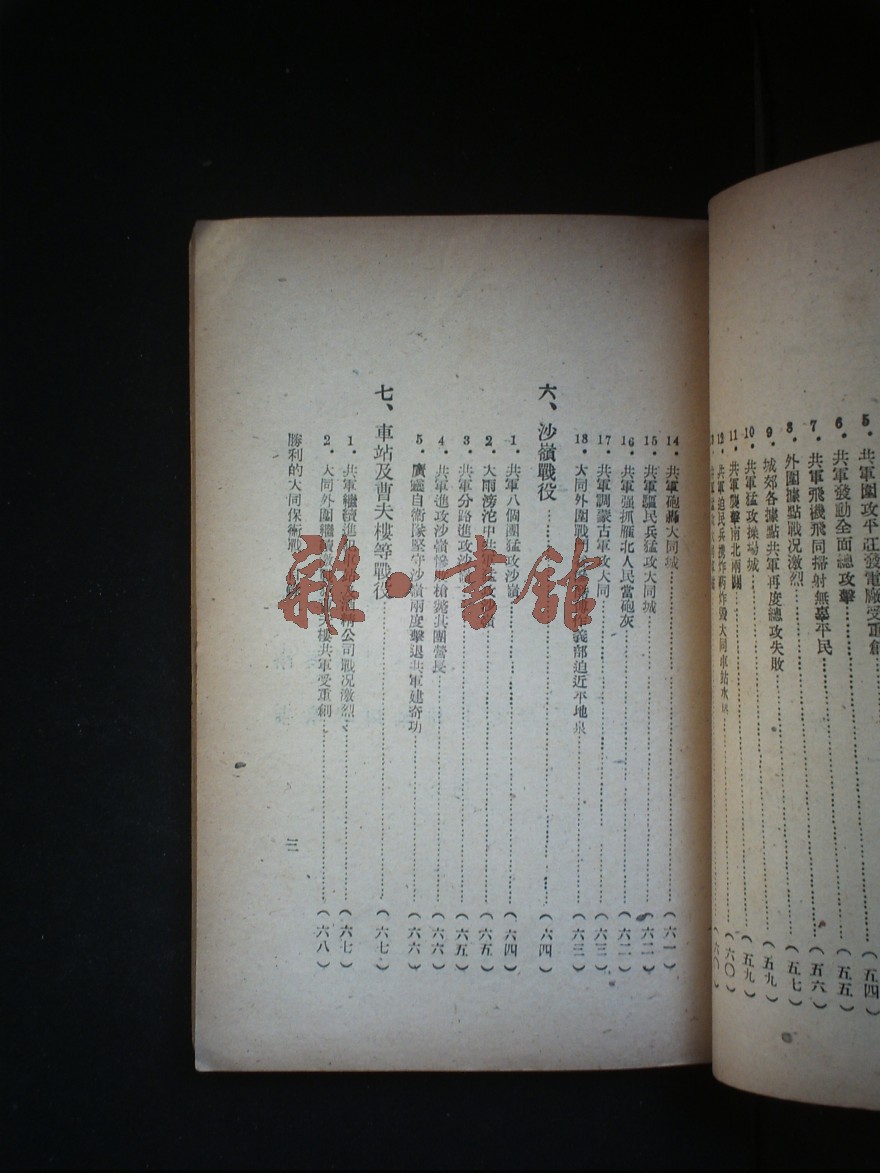 5. 共軍圍攻平旺發電廠受重創………(五四)
6. 共軍發動全面總攻擊………(五五)
7. 共軍飛機飛同掃射無辜平民………(五六)
8. 外圍據點戰况激烈………(五七)
9. 城郊各據點共軍再度總攻失敗………(五九)
10. 共軍猛攻操場城………(五九)
11. 共軍襲擊南北兩關………(六〇)
12. 共軍迫民兵携炸葯炸毀大同車站水塔………(六〇)
14. 共軍砲轟大同城………(六一)
15. 共軍驅民兵猛攻大同城………(六二)
16. 共軍强抓雁北人民當砲灰………(六二)
17. 共軍調蒙古軍攻大同………(六三)
18. 大同外圍戰 義部迫近平地泉………(六三)
六、沙嶺戰役………(六四)
1. 共軍八個團猛攻沙嶺………(六四)
2. 大雨滂沱中共軍猛攻………(六五)
3. 共軍分路進攻沙………(六五)
4. 共軍進攻沙嶺慘 槍斃其團營長………(六六)
5. 廣靈自衛隊堅守沙嶺兩度擊退共軍建奇功………(六六)
七、車站及曹夫樓等戰役………(六七)
1. 共軍繼續進 公司戰况激烈………(六七)
2. 大同外圍繼續激 夫樓共軍受重創………(六八)
勝利的大同保衛戰
三
雜·書館